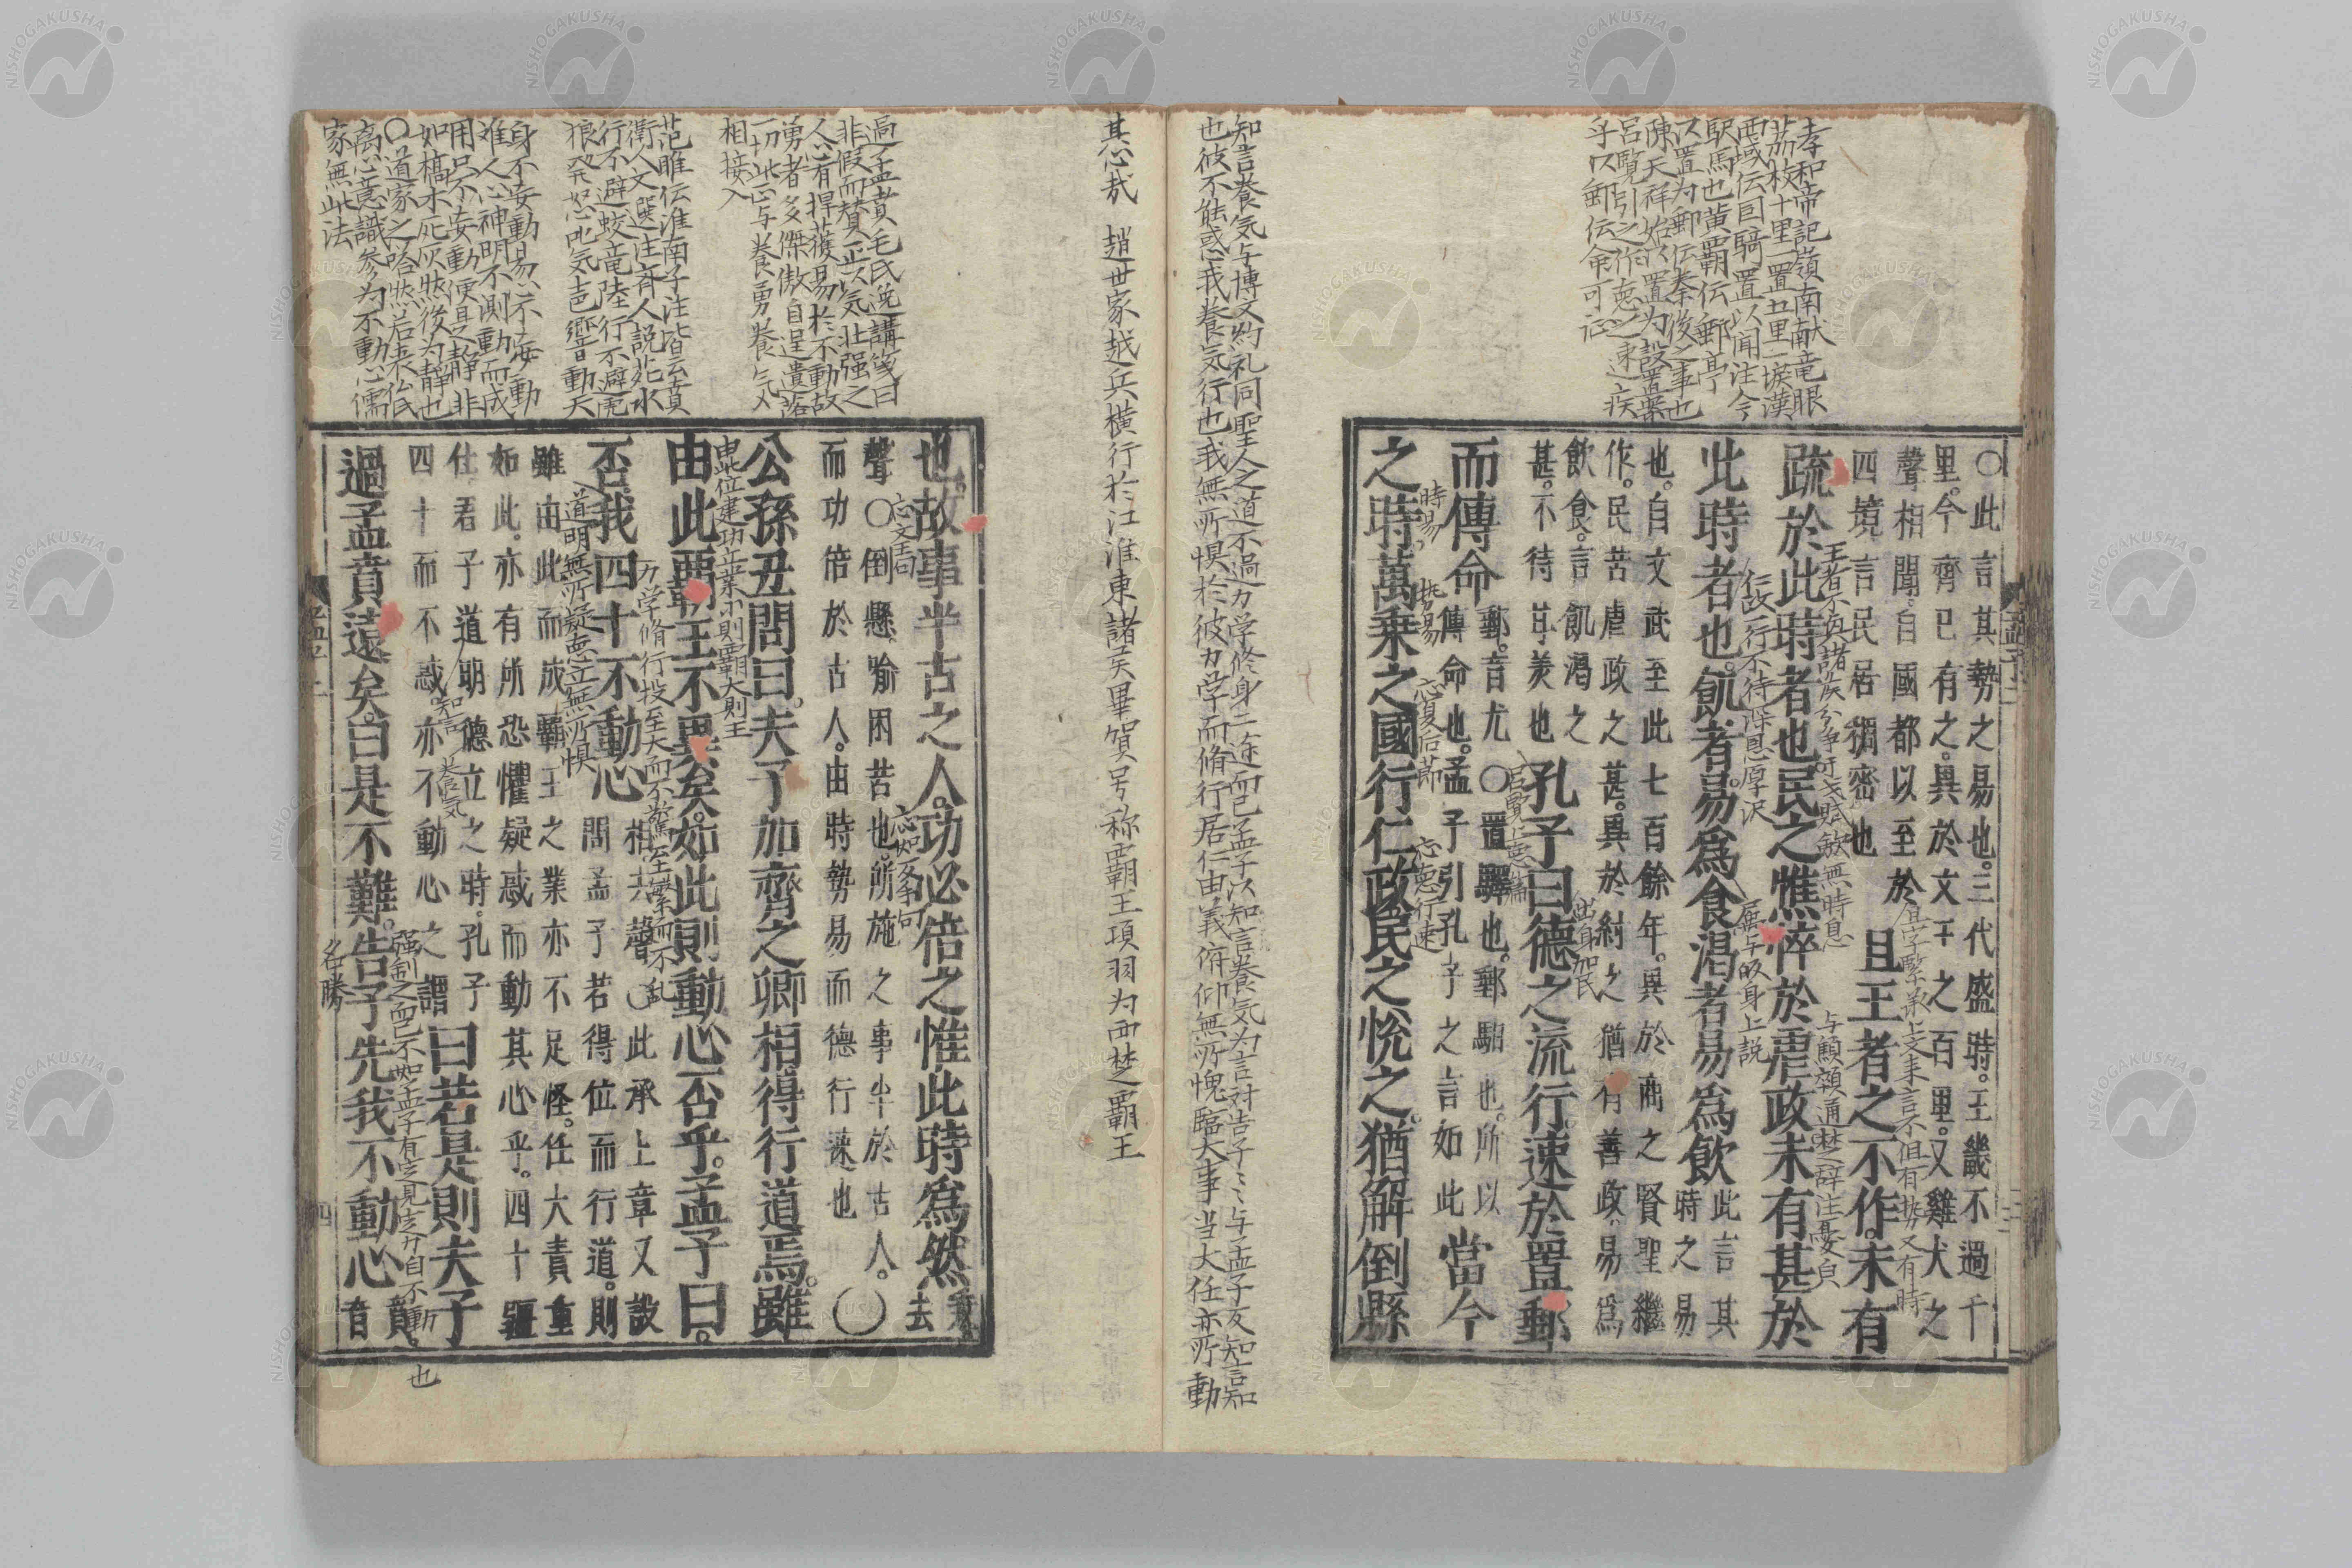 孝和帝記嶺南献竜眼
茘枝十里一置五里一堠漢
西域伝因騎置以聞注今
駅馬也黄覇伝郵亭
以置为郵伝秦後之事也
呂覧引之作悳之速疾
乎以郵伝命可証
○此言其勢之易也。三代盛時。王畿不過千
里。今齊已有之。異於文王之百里。又雞犬之
聲相聞。自國都以至於
四境言民居稠密也
且王者之不作。未有
王者不真諸侯分争
疏於此時者也民之憔悴於虐政未有甚於
与顦顇通楚辞注憂皃
仁政一行不待深恩厚沢
此時者也。飢者易爲食渴者易爲飲
此言其
時之易
也。自文武至此七百餘年。異於商之賢聖繼
作。民苦虐政之甚。異於紂之猶有善政。易爲
飲食。言飢渴之
甚。不待甘美也
孔子曰德之流行。速於置郵
而傳命
郵。音尤○置驛也。郵馹也。所以
傳命也。孟子引孔子之言如此
當今
時易
勢易
応德行速
之時。萬乘之國行仁政民之悅之。猶解倒縣
知言養気与博文約礼同聖人之道不過力学修身二途而已孟子以知言養気为言対告子〻与孟子友知言知
也彼不能惑我養気行也我無所惧於彼力学而脩行居仁由義俯仰無所愧臨大事当大任亦所動
其心哉 趙世家越兵横行於江淮東諸矦畢賀号称覇王項羽为西楚覇王
過孟賁毛氏逸講箋曰
非假而賛正以気壮强之
人心有捍蔓易於不動故
勇者多傑傲自逞遺落
一切此正与養勇養気
相接入
范睢伝淮南子注皆云賁
衛人文選注斉人説苑水
行不避蛟竜陸行不避虎
狼発怒吐気声響動天
身不妄動易不妄動
难人心神明不測動而成
用只不妄動便是静非
如槁木死灰然後为静也
○道家之嗒然若喪仏
离心意識参为不動心儒
家無此法
也。故事半古之人。功必倍之惟此時爲然
乘
去
応文王句
聲○倒懸。喻困苦也。所施之事半於古人。
而功倍於古人。由時勢易而德行速也
○
公孫丑問曰。夫子加齊之卿相。得行道焉。雖
由此位建功立業小則覇大則王
由此霸王不異矣。如此則動心否乎。孟子曰。
力学脩行投至大而不驚至繁而不乱
否。我四十不動心
相。去聲○此承上章又設
問孟子若得位而行道。則
道明無所疑悳立無所惧
雖由此而成霸王之業亦不足怪。任大責重
如此。亦有所恐懼疑惑而動其心乎。四十彊
仕。君子道明德立之時。孔子
四十而不惑。亦不動心之謂
知言
養気
曰若是則夫子
强制之而已不如孟子有定見定力自不動也
過孟賁遠矣。曰是不難。告子先我不動心
賁。
音
名勝